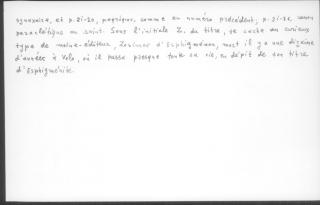 synaxaire, et p. 21-20, panégyr., comme au numéro précédent; p. 21-32, canon
paraclétique au saint. Sous l'initiale Z. du titre, se cache un curieux
type de moine-éditeur, Zosimas d'Esphigménou, mort il y a une dizaine
d'années à Volo, où il passa presque toute sa vie, en dépit de son titre
d'Esphigménite.